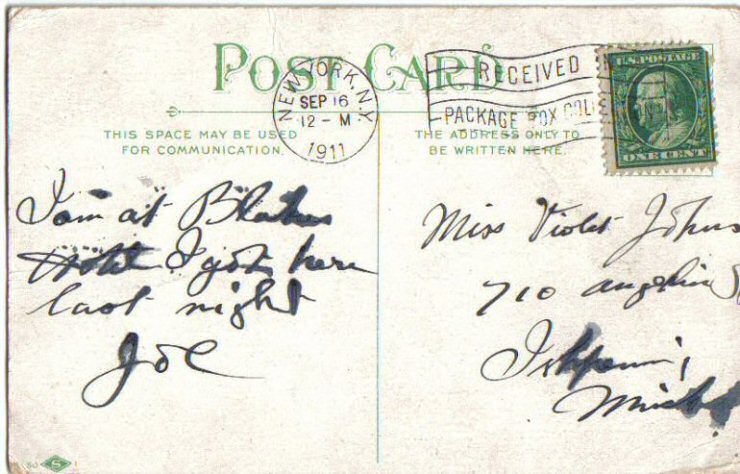 POST CARD
NEW YORK, N.Y.
SEP 16
12 - M
1911
RECEIVED
PACKAGE BOX
U.S. POSTAGE
ONE CENT
THIS SPACE MAY BE USED
FOR COMMUNICATION.
THE ADDRESS ONLY TO
BE WRITTEN HERE.
I am at
I got here
last night
Joe
Miss Violet Johns
710 Angeline
Ishpeming
Mich